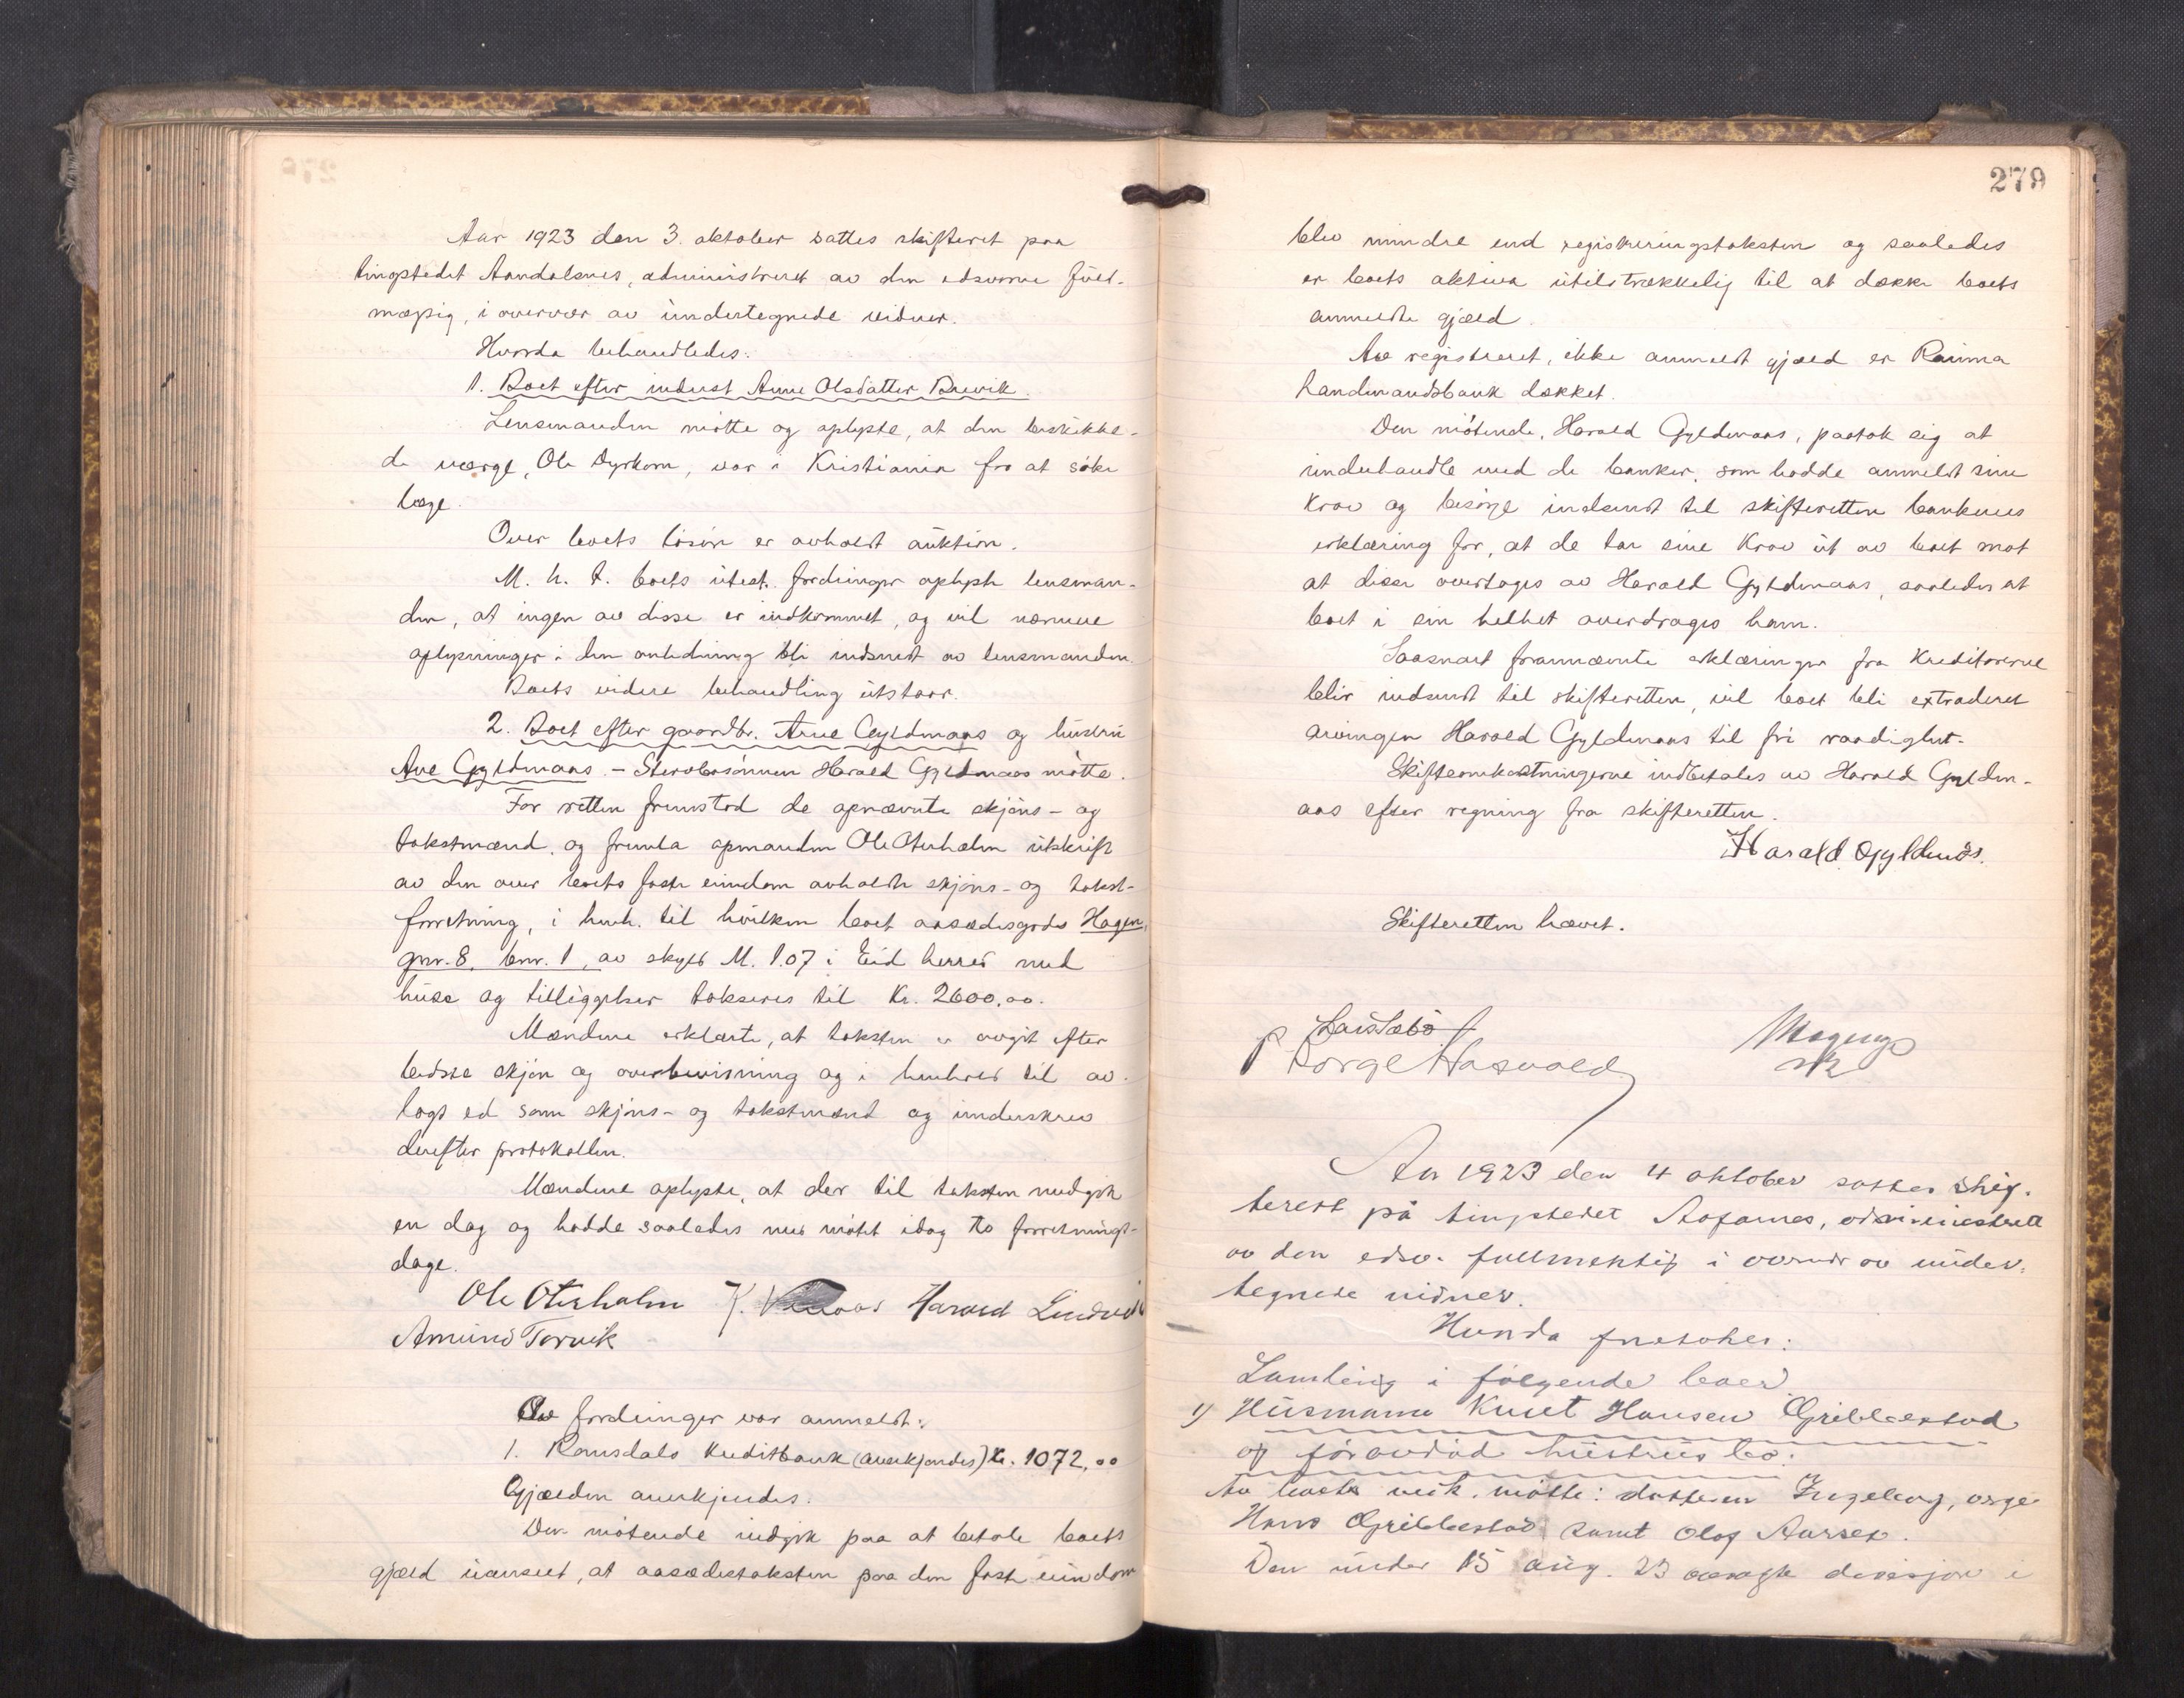 Aar 1923 den 3. oktober sattes skifteret paa
tingstedet Aandalsnes, administreret av den edsvorne fuld-
mægtig, i overvær av undertegnede vidner.
Hvorda behandledes:
1. Boet efter inderst Anne Olsdatter Brevik.
Lensmanden møtte og oplyste, at den beskikke-
de verge, Ole Dyrkorn, var i Kristiania for at søke
læge.
Over boets løsøre er avholdt auktion.
M. h. t. boets utest. fordringer oplyste lensman-
den, at ingen av disse er indkommet, og vil nærmere
oplysninger i den anledning bli indsendt av lensmanden.
Boets videre behandling utstaar.
2. Boet efter gaardbr. Arne Gyldenaas og hustru
Ane Gyldenaas. – Sterbosønnen Harald Gyldenaas møtte.
For retten fremstod de opnævnte skjøns- og
takstmænd, og fremla opmanden Ole Oterholm utskrift
av den over boets faste eiendom avholdte skjøns- og takst-
forretning, i henh. til hvilken boet aasædesgods Hagen,
gnr. 8, bnr. 1, av skyld M. 1.07 i Eid herred med
huse og tilliggelser takseres til Kr. 2600,00.
Mændene erklærte, at taksten er avgit efter
bedste skjøn og overbevisning og i henhold til av-
lagt ed som skjøns- og takstmænd og underskrev
derefter protokollen.
Mændene oplyste, at der til taksten medgik
en dag og hadde saaledes med møtet idag to forretnings-
dage.
Ole Oterholm K. Harald Lindvik
Amund Torvik
Av fordringer var anmeldt:
1. Romsdals Kreditbank (anerkjendes) Kr. 1072,00
Gjælden anerkjendes.
Den møtende indgik paa at betale boets
gjæld uanseet, at aasædestaksten paa den faste eiendom
279
blev mindre end registreringstaksten og saaledes
er boets aktiva utilstrækkelig til at dække boets
anmeldte gjæld.
Av registreret, ikke anmeldt gjæld er Rauma
Landmandsbank dækket.
Den møtende, Harald Gyldenaas, paatok sig at
underhandle med de banker, som hadde anmeldt sine
krav og besørge indsendt til skifteretten bankenes
erklæring for, at de tar sine krav ut av boet mot
at disse overtages av Harald Gyldenaas, saaledes at
boet i sin helhet overdrages ham.
Saasnart fornævnte erklæringer fra kreditorerne
blir indsendt til skifteretten, vil boet bli extraderet
arvingen Harald Gyldenaas til fri raadighet.
Skifteomkostningerne indbetales av Harald Gylden-
aas efter regning fra skifteretten.
Harald Gyldenås.
Skifteretten hævet.
Lars Sæbø
Børge Hasvold
Aar 1923 den 4 oktober sattes skif-
terett på tingstedet administrert
av den edsv. fullmektig i overvær av under-
tegnede vidner.
Hvorda foretokes:
Samling i følgende boer
1) Husmann Knut Hansen Gribbestad
og foravdød hustrus bo:
Av boets vedk. møtte: datteren Ingeborg,
Hans Gribbestad samt Olaf Aarset.
Den under 15 aug. 23 i